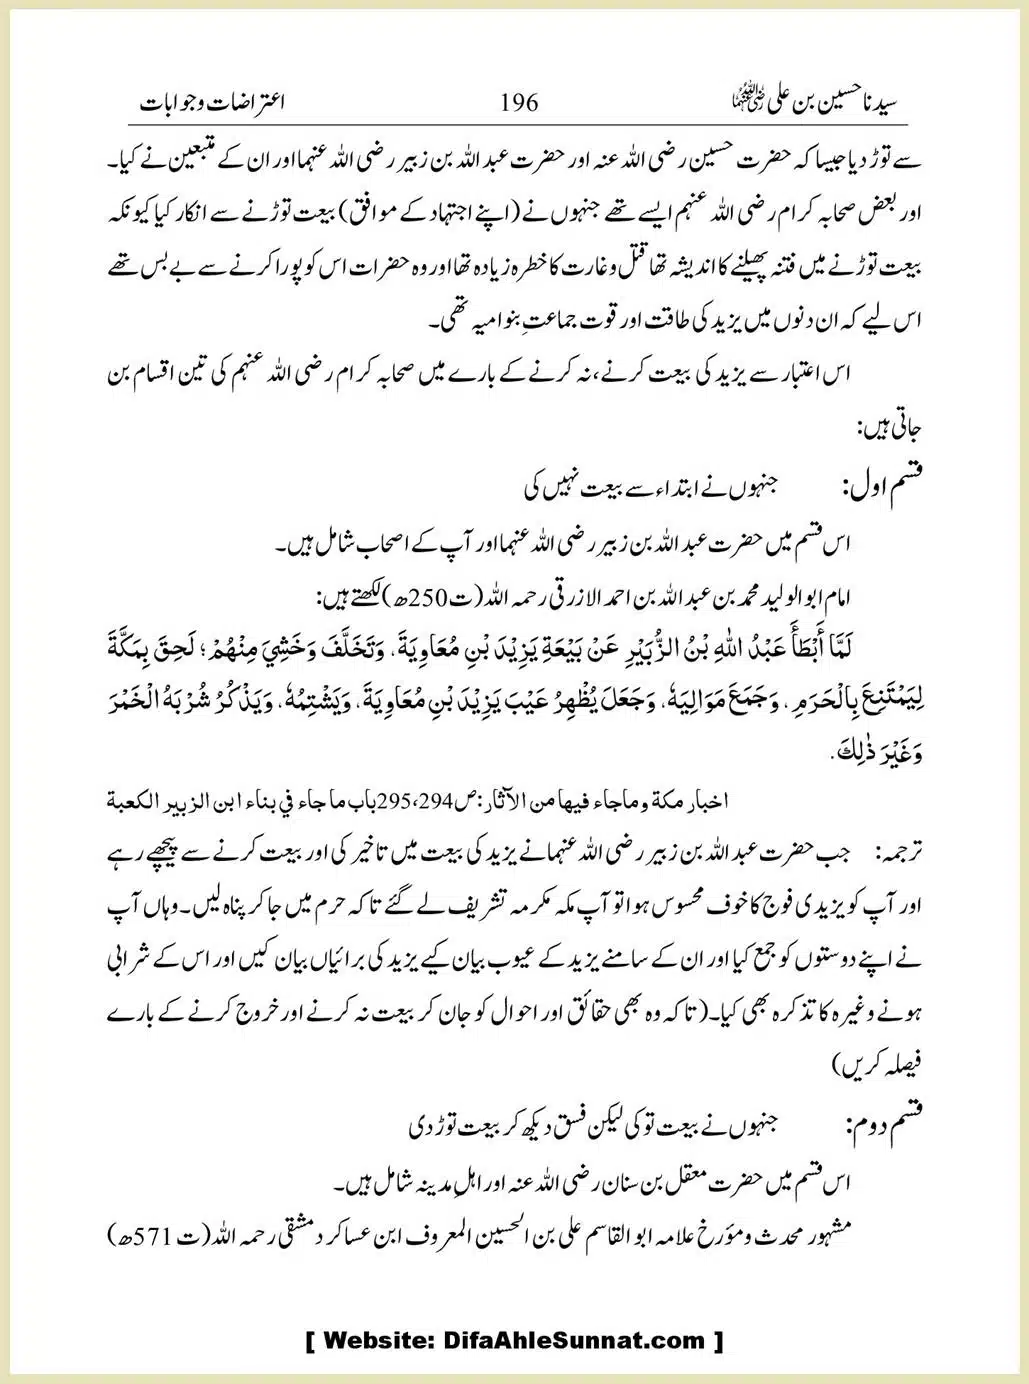 سیدنا حسین بن علی رضی اللہ عنہما 196 اعتراضات و جوابات
سے توڑ دیا جیسا کہ حضرت حسین رضی اللہ عنہ اور حضرت عبد اللہ بن زبیر رضی اللہ عنہما اور ان کے متبعین نے کیا۔
اور بعض صحابہ کرام رضی اللہ عنہم ایسے تھے جنہوں نے (اپنے اجتہاد کے موافق) بیعت توڑنے سے انکار کیا کیونکہ
بیعت توڑنے میں فتنہ پھیلنے کا اندیشہ تھا قتل و غارت کا خطرہ زیادہ تھا اور وہ حضرات اس کو پورا کرنے سے بے بس تھے
اس لیے کہ ان دنوں میں یزید کی طاقت اور قوت جماعتِ بنو امیہ تھی۔
اس اعتبار سے یزید کی بیعت کرنے، نہ کرنے کے بارے میں صحابہ کرام رضی اللہ عنہم کی تین اقسام بن
جاتی ہیں:
قسم اول: جنہوں نے ابتداء سے بیعت نہیں کی
اس قسم میں حضرت عبد اللہ بن زبیر رضی اللہ عنہما اور آپ کے اصحاب شامل ہیں۔
امام ابو الولید محمد بن عبد اللہ بن احمد الازرقی رحمہ اللہ (ت 250ھ) لکھتے ہیں:
لَمَّا أَبْطَأَ عَبْدُ اللهِ بْنُ الزُّبَيْرِ عَنْ بَيْعَةِ يَزِيْدَ بْنِ مُعَاوِيَةَ، وَتَخَلَّفَ وَخَشِيَ مِنْهُمْ؛ لَحِقَ بِمَكَّةَ
لِيَمْتَنِعَ بِالْحَرَمِ، وَجَمَعَ مَوَالِيَهٗ، وَجَعَلَ يُظْهِرُ عَيْبَ يَزِيْدَ بْنِ مُعَاوِيَةَ، وَيَشْتِمُهٗ، وَيَذْكُرُ شُرْبَهُ الْخَمْرَ
وَغَيْرَ ذٰلِكَ.
اخبار مكة وما جاء فيها من الآثار: ص294، 295 باب ما جاء في بناء ابن الزبير الكعبة
ترجمہ: جب حضرت عبد اللہ بن زبیر رضی اللہ عنہما نے یزید کی بیعت میں تاخیر کی اور بیعت کرنے سے پیچھے رہے
اور آپ کو یزیدی فوج کا خوف محسوس ہوا تو آپ مکہ مکرمہ تشریف لے گئے تاکہ حرم میں جا کر پناہ لیں۔ وہاں آپ
نے اپنے دوستوں کو جمع کیا اور ان کے سامنے یزید کے عیوب بیان کیے یزید کی برائیاں بیان کیں اور اس کے شرابی
ہونے وغیرہ کا تذکرہ بھی کیا۔ (تاکہ وہ بھی حقائق اور احوال کو جان کر بیعت نہ کرنے اور خروج کرنے کے بارے
فیصلہ کریں)
قسم دوم: جنہوں نے بیعت تو کی لیکن فسق دیکھ کر بیعت توڑ دی
اس قسم میں حضرت معقل بن سنان رضی اللہ عنہ اور اہلِ مدینہ شامل ہیں۔
مشہور محدث و مؤرخ علامہ ابو القاسم علی بن الحسین المعروف ابن عساکر دمشقی رحمہ اللہ (ت 571ھ)
[ Website: DifaAhleSunnat.com ]